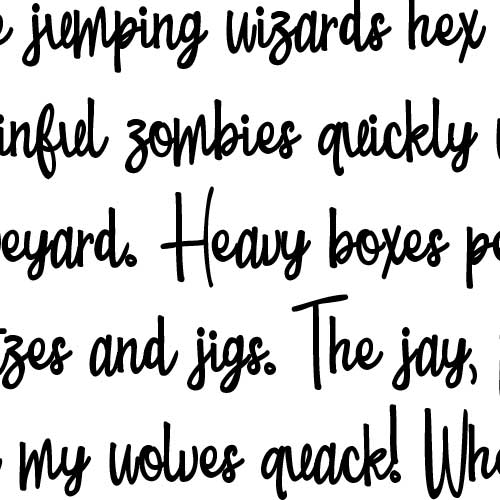 jumping wizards hex
zombies quickly
yard. Heavy boxes
and jigs. The jay,
my wolves quack!